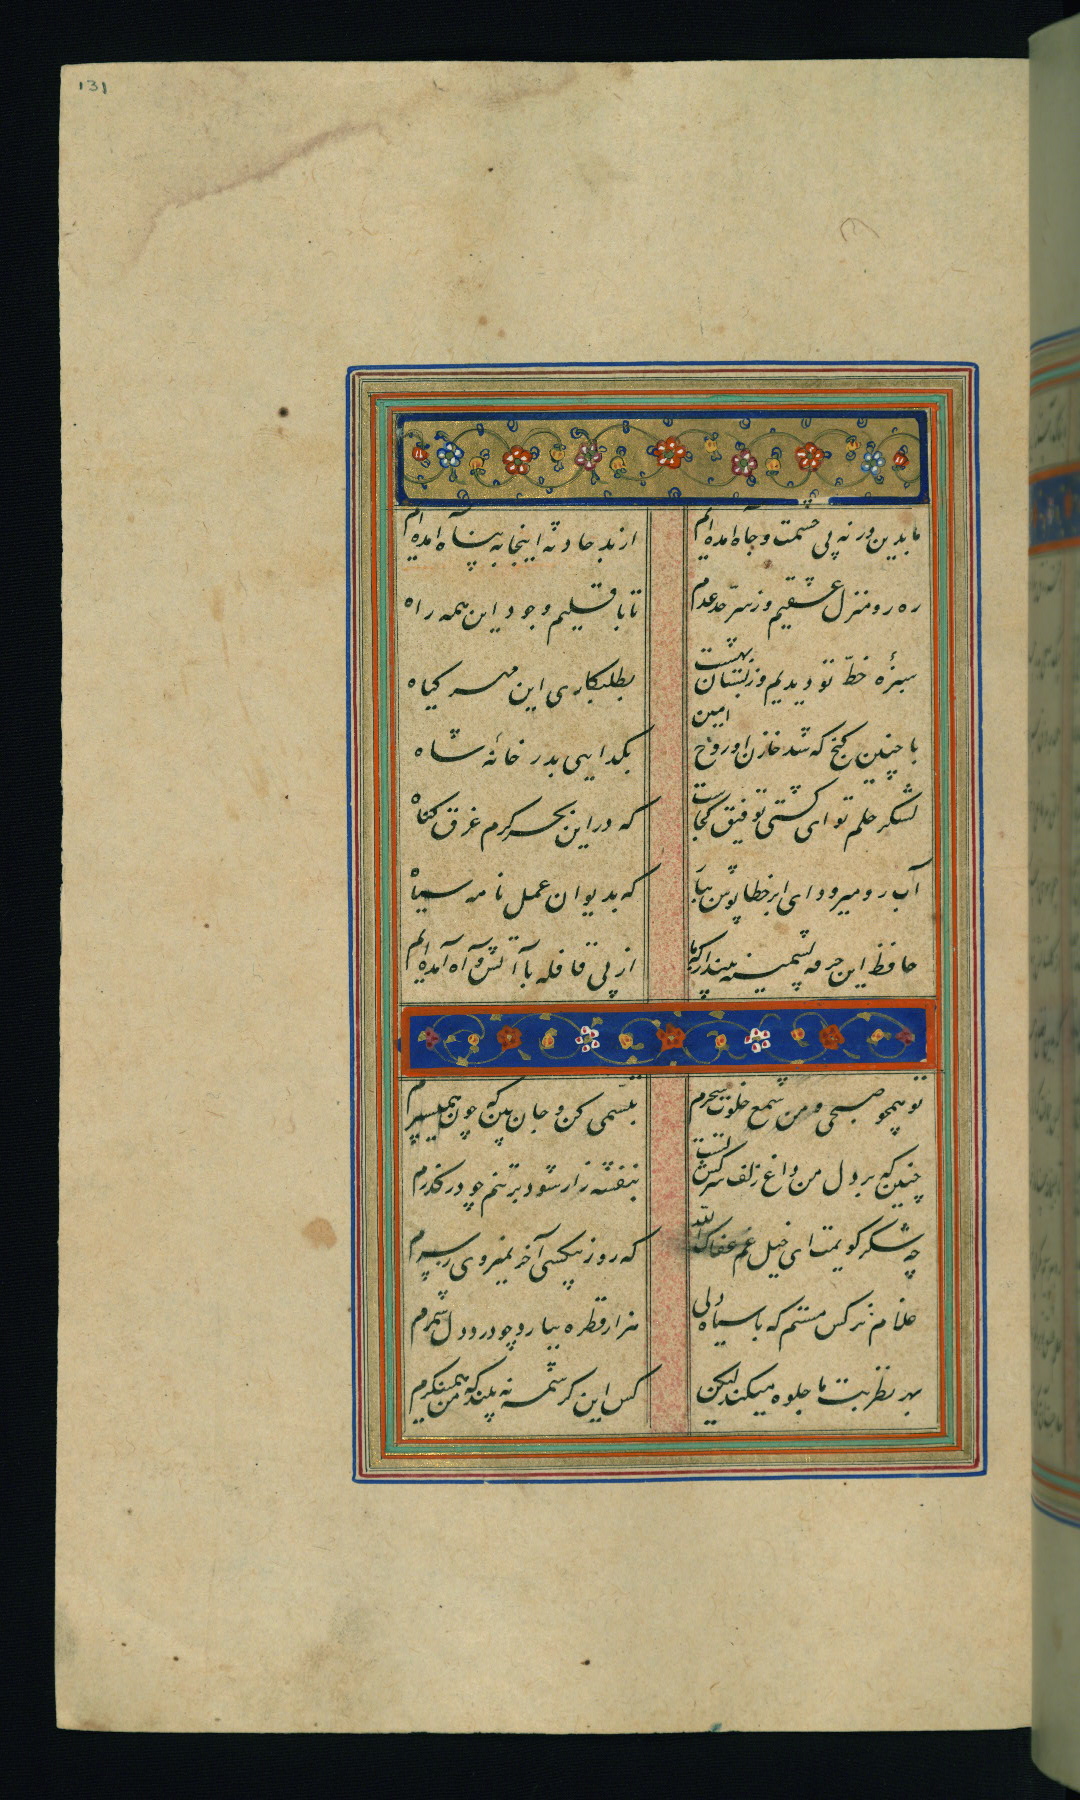 131
ما بدین در نه پی حشمت و جاه آمده‌ایم
از بد حادثه اینجا به پناه آمده‌ایم
ره رو منزل عشقیم و ز سر حد عدم
تا باقلیم وجود این همه راه
سبزهٔ خط تو دیدیم و ز بستان بهشت
بطلبکاری این مهر کیاه
با چنین کنج که شد خازن او روح امین
بکدایی بدر خانهٔ شاه
لنکر حلم تو ای کشتی توفیق کجاست
که درین بحر کرم غرق کناه
آب رو میرود ای ابر خطا پوش ببار
که بدیوان عمل نامه سیاه
حافظ این خرقه پشمینه بینداز که ما
از پی قافله با آتش و آه آمده‌ایم
تو همچو صبحی و من شمع خلوت سحرم
تبسمی کن و جان بین که چون همیسپرم
چنین که بر دل من داغ زلف سرکش تست
بنفشه زار شود تربتم چو درکذرم
چه شکر کویمت ای خیل غم عفاک الله
که روز بیکسی آخر نمیروی ز سرم
غلام نرکس مستم که با سیاه دلی
هزار قطره ببارد چو درد دل شمرم
بهر نظر بت ما جلوه میکند لیکن
کس این کرشمه نه بیند که من همینکرم